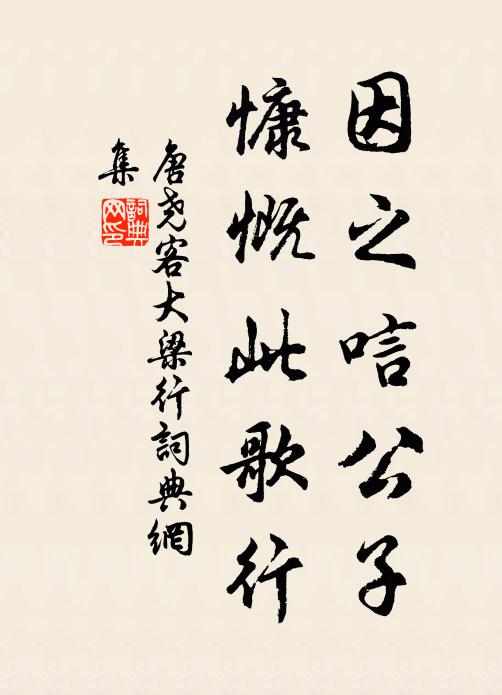 因之唁公子
慷慨此歌行
唐尧客大梁行詞典網
集
詞典網印